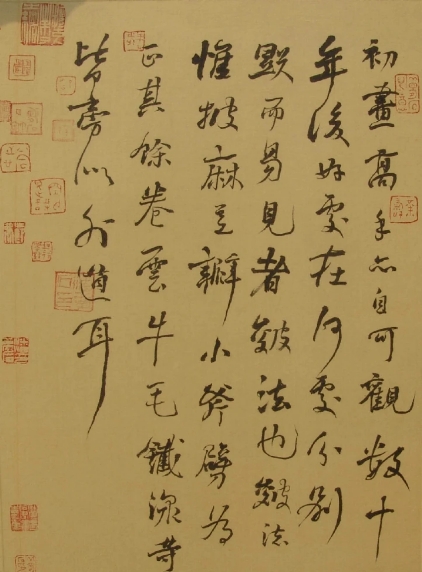 初畫高手亦自可觀數十
年後好處在何處分別
顯而易見者皴法也皴法
惟披麻豆瓣小斧劈為
正其餘卷雲牛毛鐵線等
皆旁似外道耳